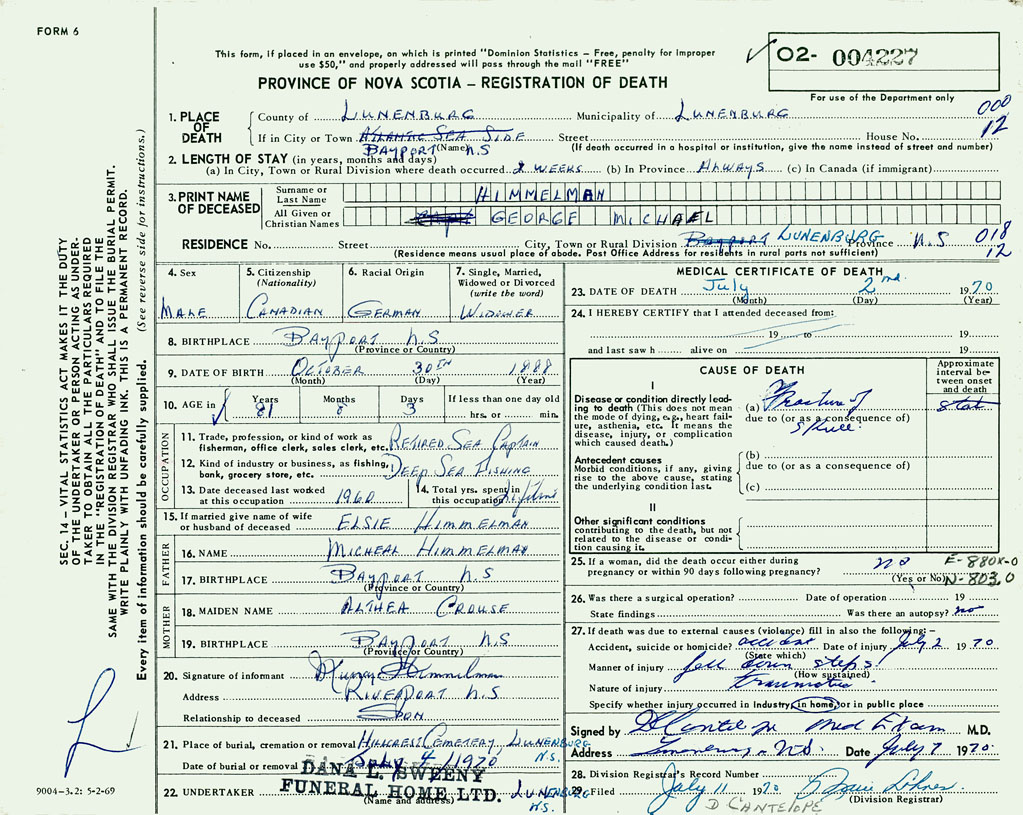 FORM 6
This form, if placed in an envelope, on which is printed "Dominion Statistics – Free, penalty for improper
use $50," and properly addressed will pass through the mail "FREE"
O2- 004227
PROVINCE OF NOVA SCOTIA – REGISTRATION OF DEATH
For use of the Department only
1. PLACE OF DEATH County of LUNENBURG Municipality of LUNENBURG 000
If in City or Town ATLANTIC SEA SIDE Street House No. 12
BAYPORT (Name) N.S (If death occurred in a hospital or institution, give the name instead of street and number)
2. LENGTH OF STAY (in years, months and days)
(a) In City, Town or Rural Division where death occurred 2 WEEKS (b) In Province ALWAYS (c) In Canada (if immigrant)
3. PRINT NAME OF DECEASED Surname or Last Name HIMMELMAN
All Given or Christian Names CAPT GEORGE MICHAEL
RESIDENCE No. Street City, Town or Rural Division BAYPORT LUNENBURG Province N.S 018
(Residence means usual place of abode. Post Office Address for residents in rural parts not sufficient) 12
4. Sex
MALE
5. Citizenship
(Nationality)
CANADIAN
6. Racial Origin
GERMAN
7. Single, Married,
Widowed or Divorced
(write the word)
WIDOWER
8. BIRTHPLACE BAYPORT N.S
(Province or Country)
9. DATE OF BIRTH OCTOBER 30TH 1888
(Month) (Day) (Year)
10. AGE in Years Months Days If less than one day old
81 8 3 hrs. or min.
OCCUPATION
11. Trade, profession, or kind of work as
fisherman, office clerk, sales clerk, etc. RETIRED SEA CAPTAIN
12. Kind of industry or business, as fishing,
bank, grocery store, etc. DEEP SEA FISHING
13. Date deceased last worked
at this occupation 1960
14. Total yrs. spent in
this occupation Lifetime
15. If married give name of wife
or husband of deceased ELSIE HIMMELMAN
FATHER
16. NAME MICHEAL HIMMELMAN
17. BIRTHPLACE BAYPORT N.S
(Province or Country)
MOTHER
18. MAIDEN NAME ALTHEA CROUSE
19. BIRTHPLACE BAYPORT N.S
(Province or Country)
20. Signature of informant Murray Himmelman
Address RIVERPORT N.S
Relationship to deceased SON
21. Place of burial, cremation or removal HILLCREST CEMETERY, LUNENBURG
N.S.
Date of burial or removal July 4/1970
22. UNDERTAKER DANA L. SWEENY
FUNERAL HOME LTD. LUNENBURG
(Name and address) N.S.
MEDICAL CERTIFICATE OF DEATH
23. DATE OF DEATH July 2nd 1970
(Month) (Day) (Year)
24. I HEREBY CERTIFY that I attended deceased from:
19 to 19
and last saw h alive on 19
CAUSE OF DEATH
Approximate
interval be-
tween onset
and death
I
Disease or condition directly lead-
ing to death (This does not mean
the mode of dying, e.g., heart fail-
ure, asthenia, etc. It means the
disease, injury, or complication
which caused death.)
(a) Fracture of
due to (or as a consequence of)
Skull
stat
Antecedent causes
Morbid conditions, if any, giving
rise to the above cause, stating
the underlying condition last.
(b)
due to (or as a consequence of)
(c)
II
Other significant conditions
contributing to the death, but not
related to the disease or condi-
tion causing it.
25. If a woman, did the death occur either during
pregnancy or within 90 days following pregnancy? no
(Yes or No)
E-880X-0
N-803.0
26. Was there a surgical operation? Date of operation 19
State findings Was there an autopsy? no
27. If death was due to external causes (violence) fill in also the following: –
Accident, suicide or homicide? accident Date of injury July 2 1970
(State which)
Manner of injury fall down steps
(How sustained)
Nature of injury traumatic
Specify whether injury occurred in Industry, in home, or in public place
Signed by D Cantelope Med Exam M.D.
Address Lunenburg N.S. Date July 7 1970
28. Division Registrar's Record Number
29. Filed July 11 1970
(Division Registrar)
D CANTELOPE
SEC. 14 – VITAL STATISTICS ACT MAKES IT THE DUTY
OF THE UNDERTAKER OR PERSON ACTING AS UNDER-
TAKER TO OBTAIN ALL THE PARTICULARS REQUIRED
IN THE "REGISTRATION OF DEATH" AND TO FILE THE
SAME WITH THE DIVISION REGISTRAR WHO SHALL ISSUE THE BURIAL PERMIT.
WRITE PLAINLY WITH UNFADING INK. THIS IS A PERMANENT RECORD.
Every item of information should be carefully supplied. (See reverse side for instructions.)
9004–3.2: 5-2-69